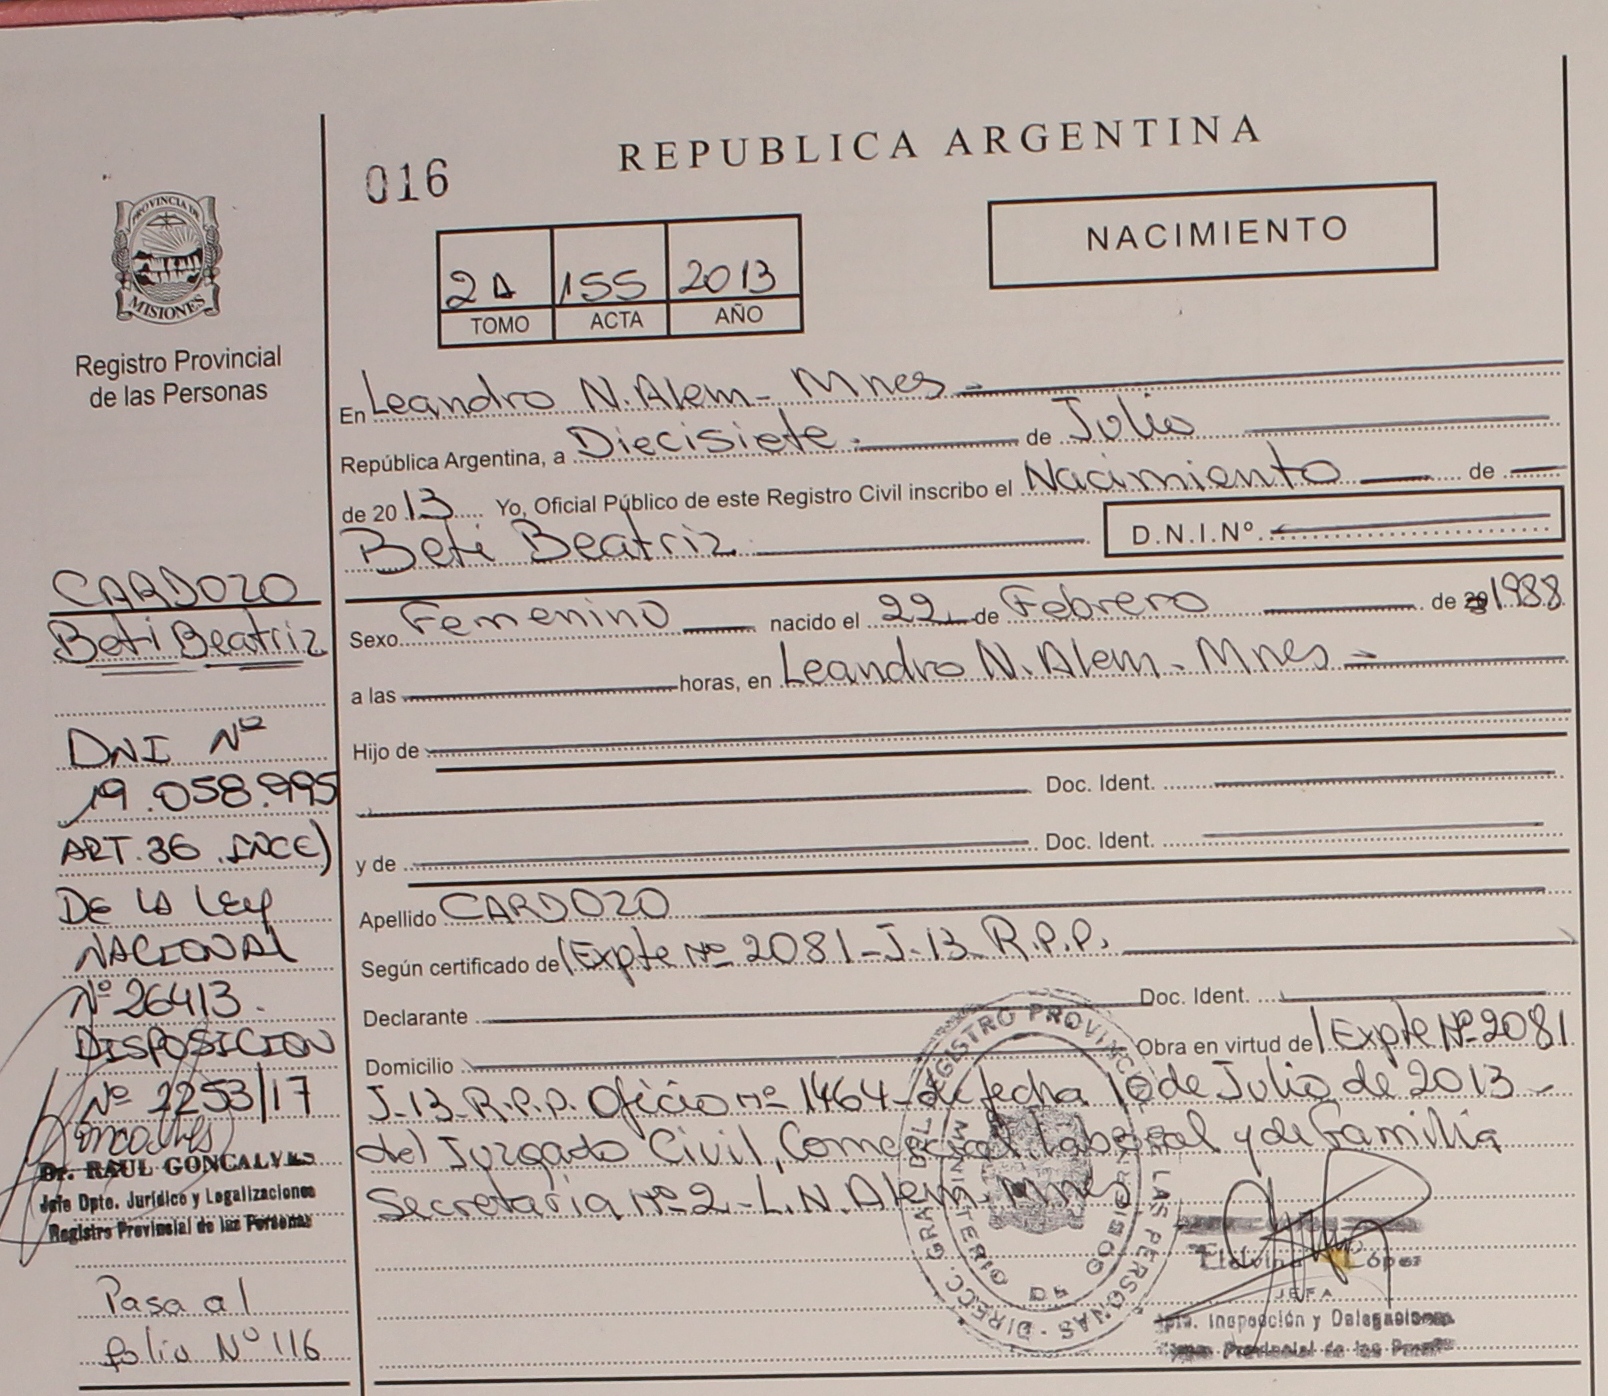 REPUBLICA ARGENTINA
016
NACIMIENTO
2A 155 2013
TOMO ACTA AÑO
PROVINCIA DE
MISIONES
Registro Provincial
de las Personas
CARDOZO
Beti Beatriz
DNI Nº
19.058.995
ART. 36 INC E)
DE LA LEY
NACIONAL
Nº 26413.
DISPOSICION
Nº 2253/17
Dr. RAUL GONCALVES
Jefe Dpto. Jurídico y Legalizaciones
Registro Provincial de las Personas
Pasa al
folio Nº 116
En Leandro N. Alem - Mnes -
República Argentina, a Diecisiete de Julio
de 2013 Yo, Oficial Público de este Registro Civil inscribo el Nacimiento de
Beti Beatriz D.N.I.Nº
Sexo Femenino nacido el 22 de Febrero de 1988
a las horas, en Leandro N. Alem - Mnes -
Hijo de
Doc. Ident.
y de Doc. Ident.
Apellido CARDOZO
Según certificado de Expte Nº 2081-J-13 R.P.P.
Declarante Doc. Ident.
Domicilio Obra en virtud de Expte Nº 2081
J-13-R.P.P. Oficio nº 1464 de fecha 10 de Julio de 2013 -
del Juzgado Civil, Comercial, Laboral y de Familia
Secretaria Nº 2 - L.N. Alem - Mnes
DIRECC. GRAL. DEL REGISTRO PROVINCIAL DE LAS PERSONAS
López
JEFA
Inspección y Delegaciones
Provincial de las